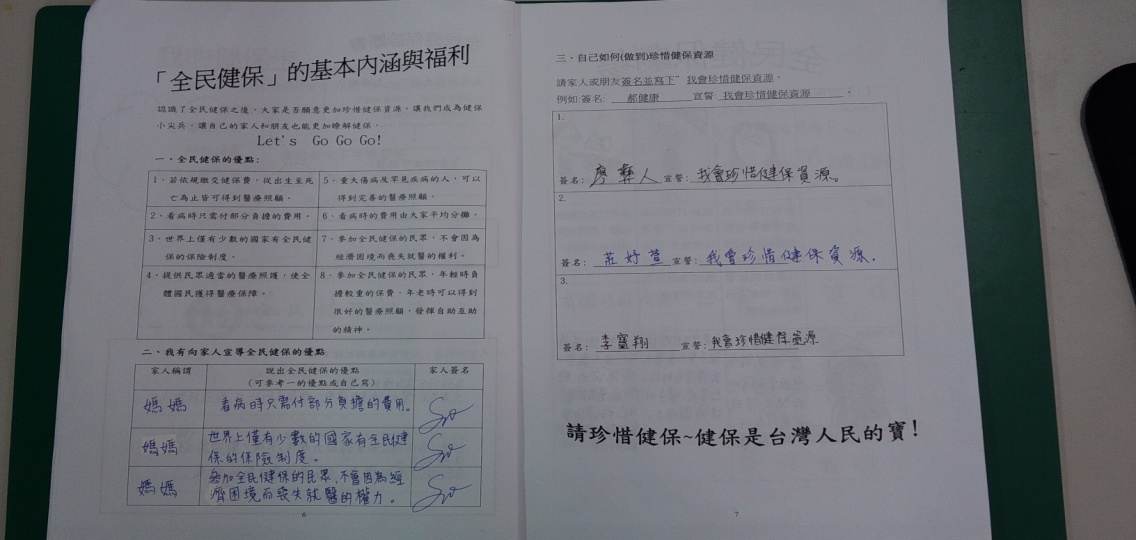 「全民健保」的基本內涵與福利
認識了全民健保之後，大家是否願意更加珍惜健保資源，讓我們成為健保
小尖兵，讓自己的家人和朋友也能更加瞭解健保。
Let's Go Go Go!
一、全民健保的優點:
1、若依規繳交健保費，從出生至死
亡為止皆可得到醫療照顧。
5、重大傷病及罕見疾病的人，可以
得到完善的醫療照顧。
2、看病時只需付部分負擔的費用。
6、看病時的費用由大家平均分攤。
3、世界上僅有少數的國家有全民健
保的保險制度。
7、參加全民健保的民眾，不會因為
經濟困境而喪失就醫的權利。
4、提供民眾適當的醫療照護，使全
體國民獲得醫療保障。
8、參加全民健保的民眾，年輕時負
擔較重的保費，年老時可以得到
很好的醫療照顧，發揮自助互助
的精神。
二、我有向家人宣導全民健保的優點
家人稱謂
說出全民健保的優點
(可參考一的優點或自己寫)
家人簽名
媽媽
看病時只需付部分負擔的費用。
媽媽
世界上僅有少數的國家有全民健
保的保險制度。
媽媽
參加全民健保的民眾,不會因為經
濟困境而喪失就醫的權力。
6
三、自己如何(做到)珍惜健保資源
請家人或朋友簽名並寫下"我會珍惜健保資源。
例如:簽名: 郝健康 宣誓: 我會珍惜健保資源 。
1.
簽名: 廖 人 宣誓: 我會珍惜健保資源。
2.
簽名: 莊妤萱 宣誓: 我會珍惜健保資源。
3.
簽名: 李 翔 宣誓: 我會珍惜健保資源
請珍惜健保~健保是台灣人民的寶!
7